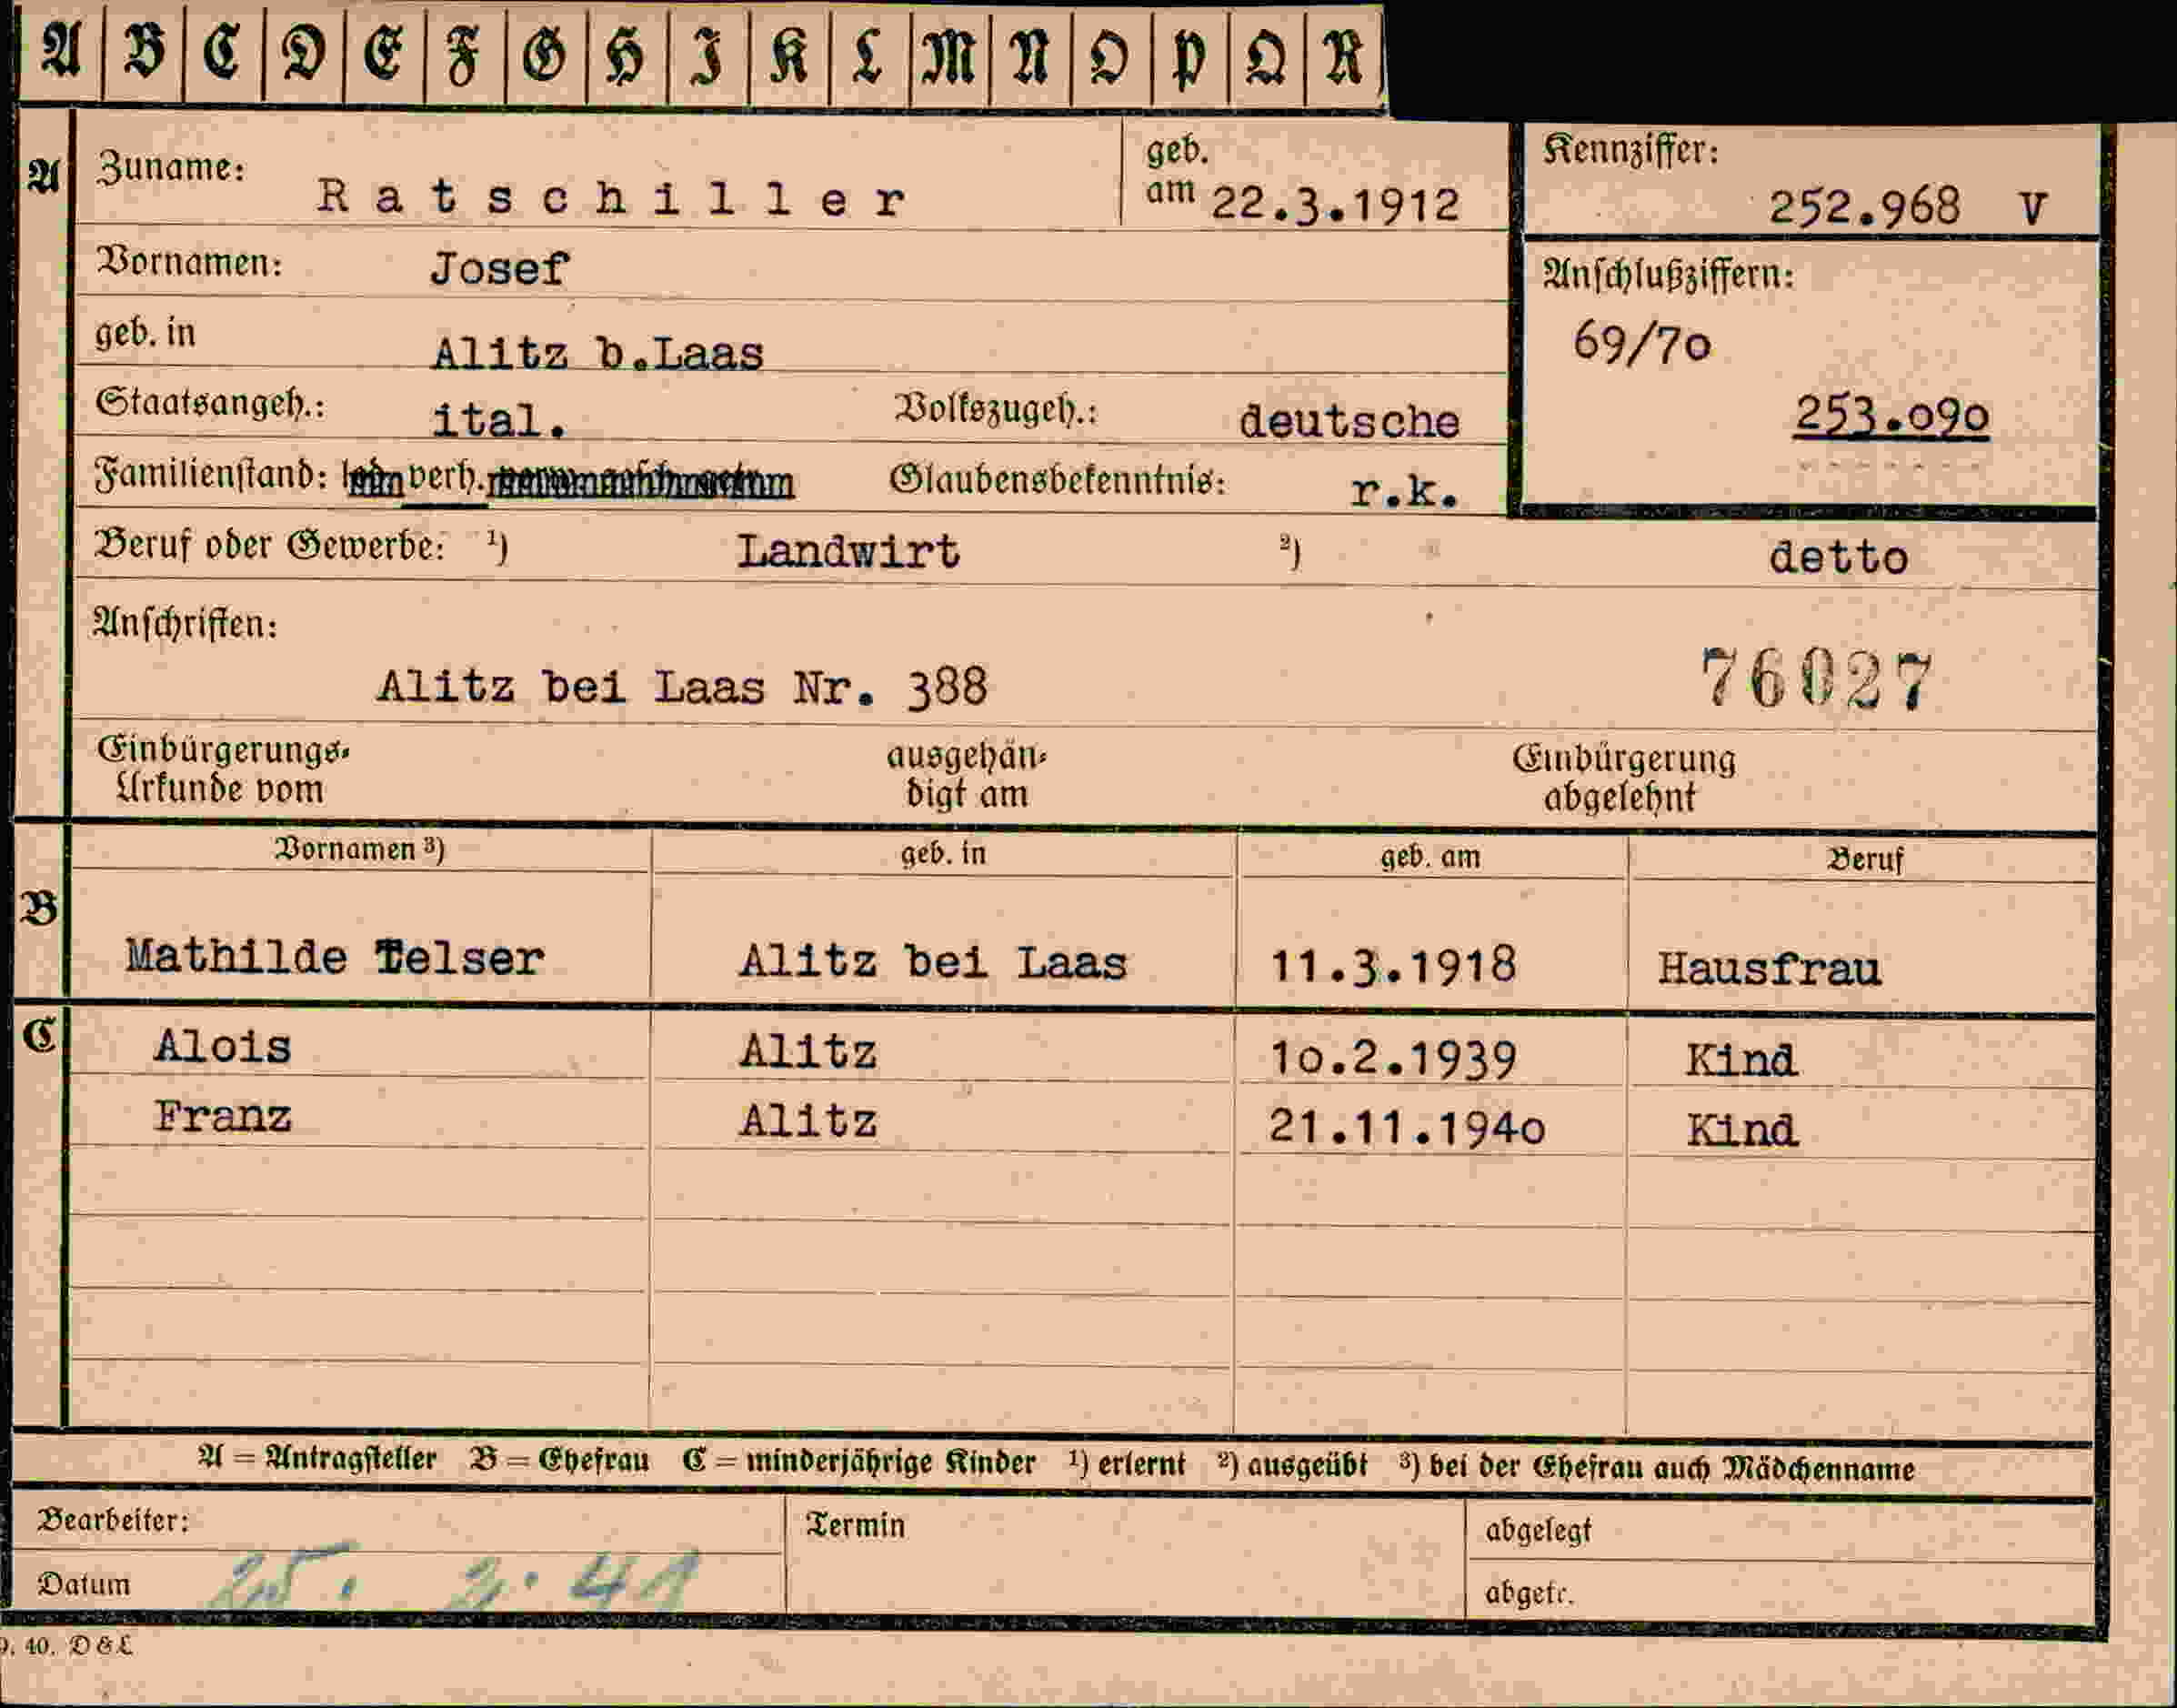 A B C D E F G H I K L M N O P Q R
A Zuname: Ratschiller geb. am 22.3.1912 Kennziffer: 252.968 V
Vornamen: Josef Anschlußziffern:
geb. in Alitz b.Laas 69/70
Staatsangeh.: ital. Volkszugeh.: deutsche 253.090
Familienstand: verh. Glaubensbekenntnis: r.k.
Beruf oder Gewerbe: ¹) Landwirt ²) detto
Anschriften:
Alitz bei Laas Nr. 388 76027
Einbürgerungs- ausgehän- Einbürgerung
Urkunde vom digt am abgelehnt
Vornamen ³) geb. in geb. am Beruf
B Mathilde Telser Alitz bei Laas 11.3.1918 Hausfrau
C Alois Alitz 10.2.1939 Kind
Franz Alitz 21.11.1940 Kind
A = Antragsteller B = Ehefrau C = minderjährige Kinder ¹) erlernt ²) ausgeübt ³) bei der Ehefrau auch Mädchenname
Bearbeiter: Termin abgelegt
Datum 25. 2. 41 abgetr.
40. D & L